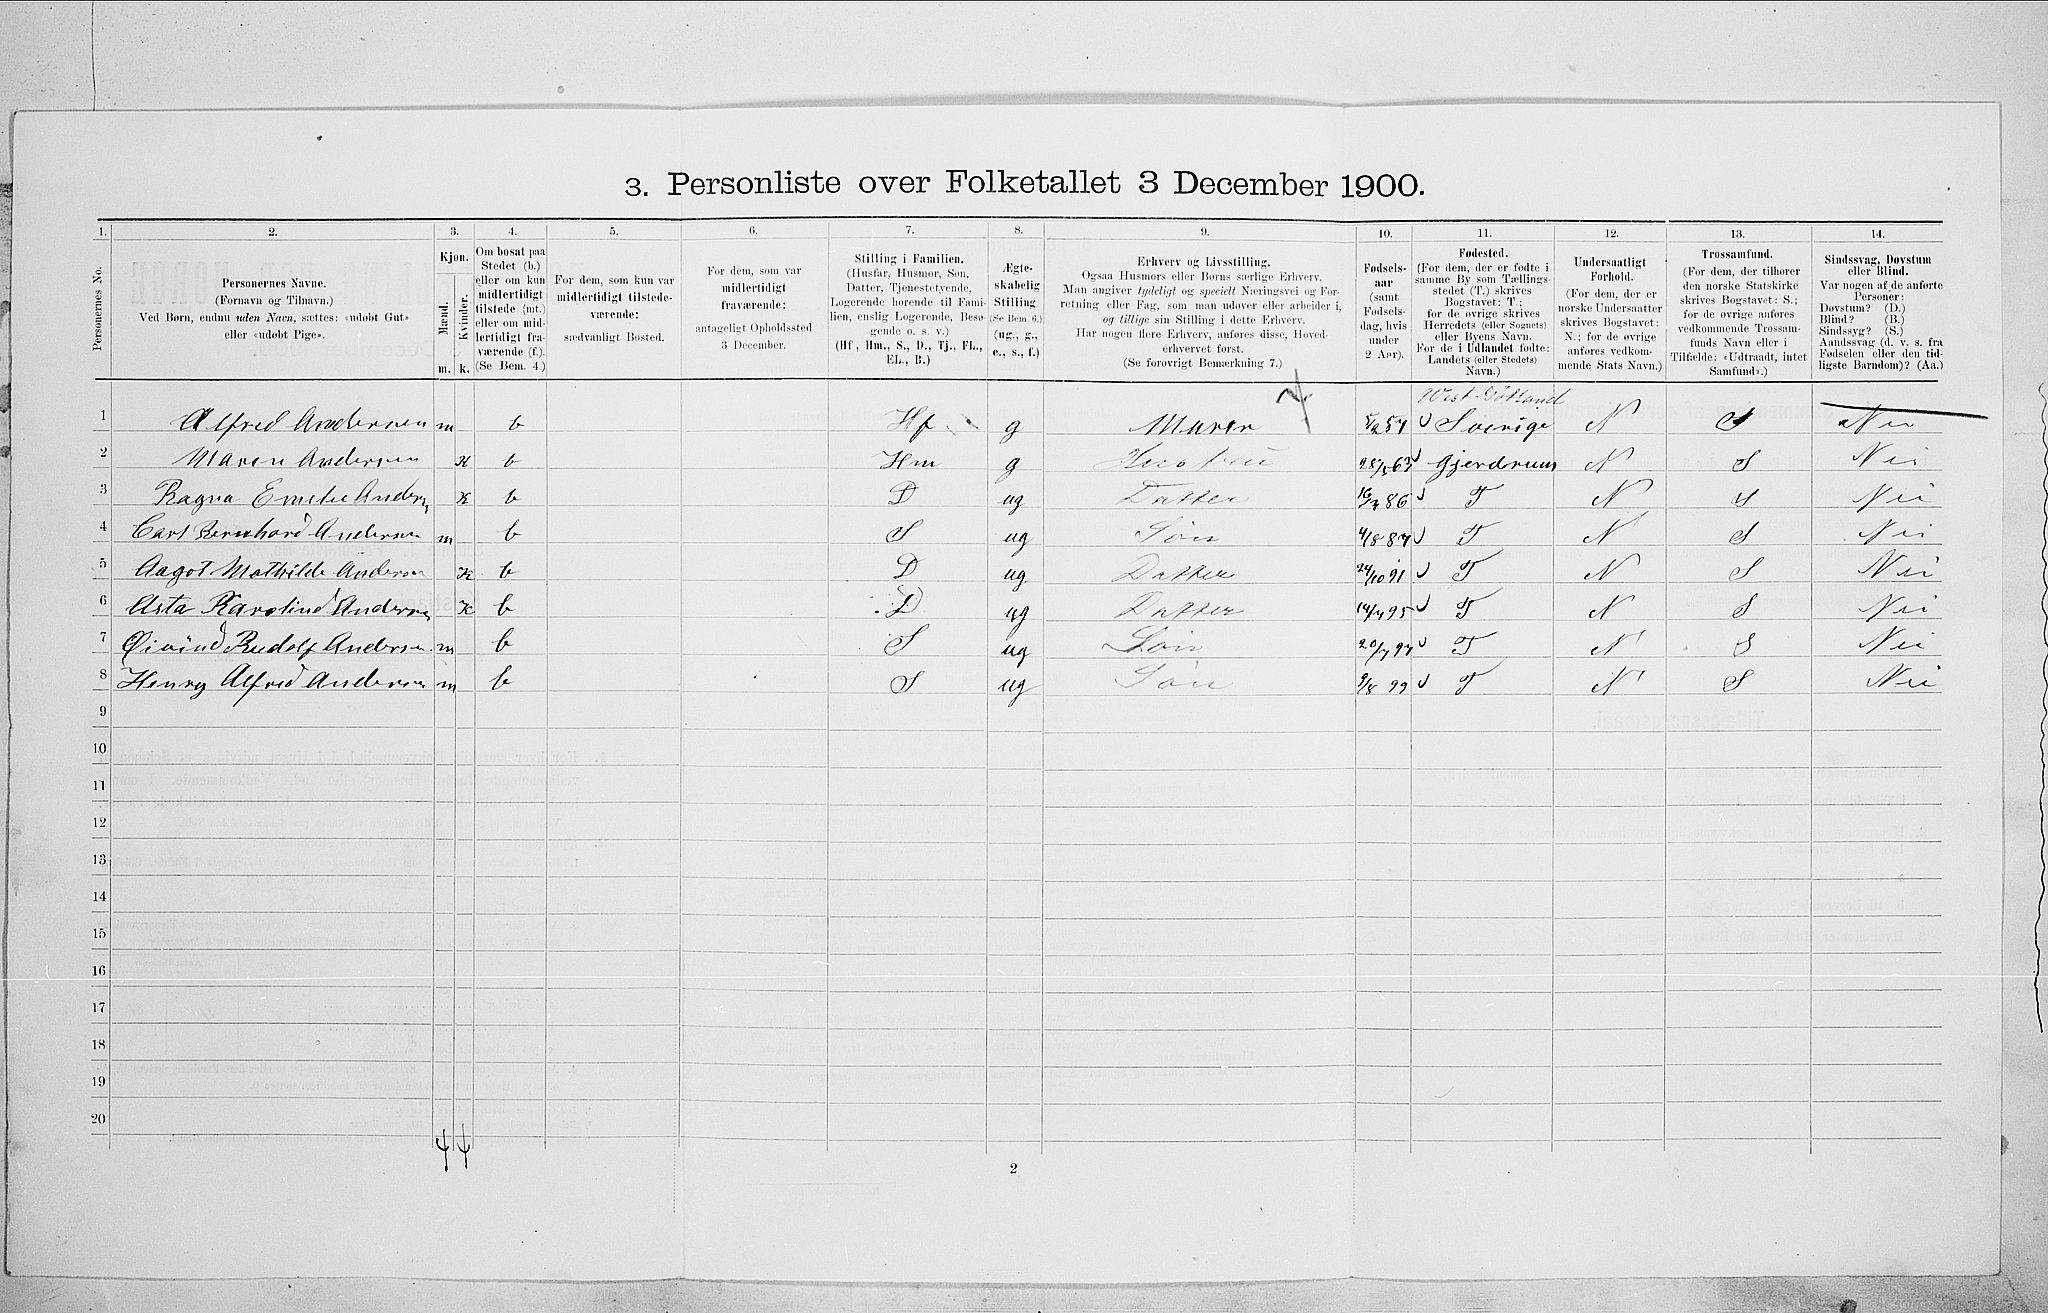 3. Personliste over Folketallet 3 December 1900.
1. 2. 3. 4. 5. 6. 7. 8. 9. 10. 11. 12. 13. 14.
Personernes No.
Personernes Navne.
(Fornavn og Tilnavn.)
Ved Børn, endnu uden Navn, sættes: «udobt Gut»
eller «udobt Pige».
Kjøn.
Mænd.
Kvinder.
m. k.
Om bosat paa
Stedet (b.)
eller om kun
midlertidigt
tilstede (mt.)
eller om mid-
lertidigt fra-
værende (f.).
(Se Bem. 4.)
For dem, som kun var
midlertidigt tilstede-
værende:
sædvanligt Bosted.
For dem, som var
midlertidigt
fraværende:
antageligt Opholdssted
3 December.
Stilling i Familien.
(Husfar, Husmor, Søn,
Datter, Tjenestetyende,
Logerende hørende til Fami-
lien, enslig Logerende, Besø-
gende o. s. v.)
(Hf., Hm., S., D., Tj., FL.,
EL., B.)
Ægte-
skabelig
Stilling.
(Se Bem. 6.)
(ug., g.,
e., s., f.)
Erhverv og Livsstilling.
Ogsaa Husmors eller Børns særlige Erhverv.
Man angiver tydeligt og specielt Næringsvei og For-
retning eller Fag, som man udøver eller arbeider i,
og tillige sin Stilling i dette Erhverv.
Har nogen flere Erhverv, anføres disse, Hoved-
erhvervet først.
(Se forøvrigt Bemærkning 7.)
Fødsels-
aar
(samt
Fødsels-
dag, hvis
under
2 Aar).
Fødested.
(For dem, der er fødte i
samme By som Tællings-
stedet (T.) skrives
Bogstavet: T.;
for de øvrige skrives
Herredets (eller Sognets)
eller Byens Navn.
For de i Udlandet fødte:
Landets (eller Stedets)
Navn.)
Undersaatligt
Forhold.
(For dem, der er
norske Undersaatter
skrives Bogstavet:
N.; for de øvrige
anføres vedkom-
mende Stats Navn.)
Trossamfund.
(For dem, der tilhører
den norske Statskirke
skrives Bogstavet: S.;
for de øvrige anføres
vedkommende Trossam-
funds Navn eller i
Tilfælde: «Udtraadt, intet
Samfund».)
Sindssvag, Døvstum
eller Blind.
Var nogen af de anførte
Personer:
Døvstum? (D.)
Blind? (B.)
Sindssyg? (S.)
Aandssvag (d. v. s. fra
Fødselen eller den tid-
ligste Barndom)? (Aa.)
West-Götland
1 Alfred Andersen m b Hf g Murer 57 Sverige N S Nei
2 Maren Andersen K b Hm g Hustru 28/5 63 Gjerdrum N S Nei
3 Ragna Emelie Andersen K b D ug Datter 86 T N S Nei
4 Carl Bernhard Andersen m b S ug Søn 4/8 87 T N S Nei
5 Aagot Mathilde Andersen K b D ug Datter 24/10 91 T N S Nei
6 Asta Karolind Andersen K b D ug Datter 14/4 95 T N S Nei
7 Øivind Rudolf Andersen m b S ug Søn 20/7 97 T N S Nei
8 Henry Alfred Andersen m b S ug Søn 9/8 99 T N S Nei
9
10
11
12
13
14
15
16
17
18
19
20
4 4
2